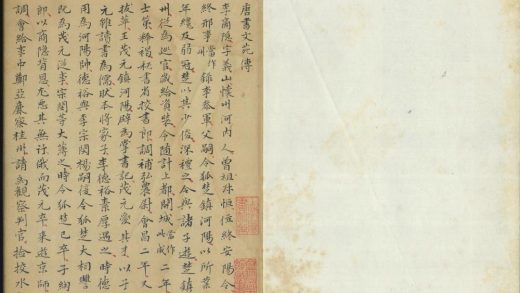 唐書文苑傳
李商隱字義山懷州河内人曾祖叔恒位終安陽令
終邢事州當作録事參軍父嗣令狐楚鎮河陽以所業
年纔及弱冠楚以其少俊深禮之令與諸子遊楚鎮
州從為巡官歲給資裝令隨計上都開成當作成二年
士第釋褐秘書省校書郎調補弘農尉會昌二年又
拔萃王茂元鎮河陽辟為掌書記茂元愛其才以子
元雖讀書為儒然本將家子李德裕素厚遇之時德
用為河陽帥德裕與李宗閔楊嗣復令狐楚大相讐
既為茂元從事宗閔等大薄之時令狐楚已卒子綯
郎以商隱背恩尤惡其無行俄而茂元卒來遊京師
調會給事中鄭亞廉察桂州請為觀察判官檢校水